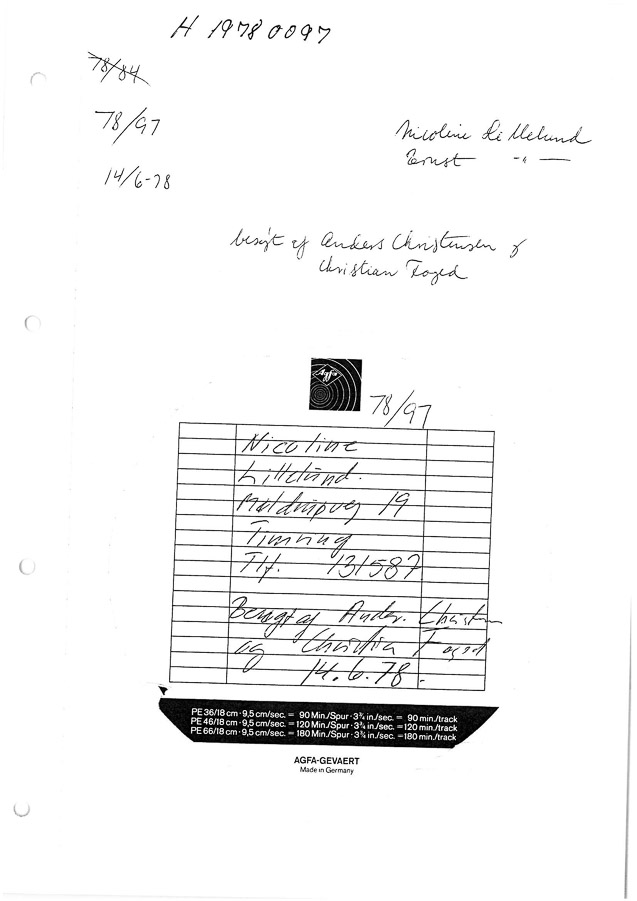 H 1978 0097
78/84
78/97
14/6-78
Nicoline Lillelund
Ernst -"-
besøgt af Anders Christensen og
Christian Foged
Agfa
78/97
Nicoline
Lillelund.
19
Timring
Tlf. 131587
Besøgt af Anders Christen
og Christian Foged
14.6.78.
PE 36/18 cm · 9,5 cm/sec. = 90 Min./Spur · 3¾ in./sec. = 90 min./track
PE 46/18 cm · 9,5 cm/sec. = 120 Min./Spur · 3¾ in./sec. = 120 min./track
PE 66/18 cm · 9,5 cm/sec. = 180 Min./Spur · 3¾ in./sec. = 180 min./track
AGFA-GEVAERT
Made in Germany